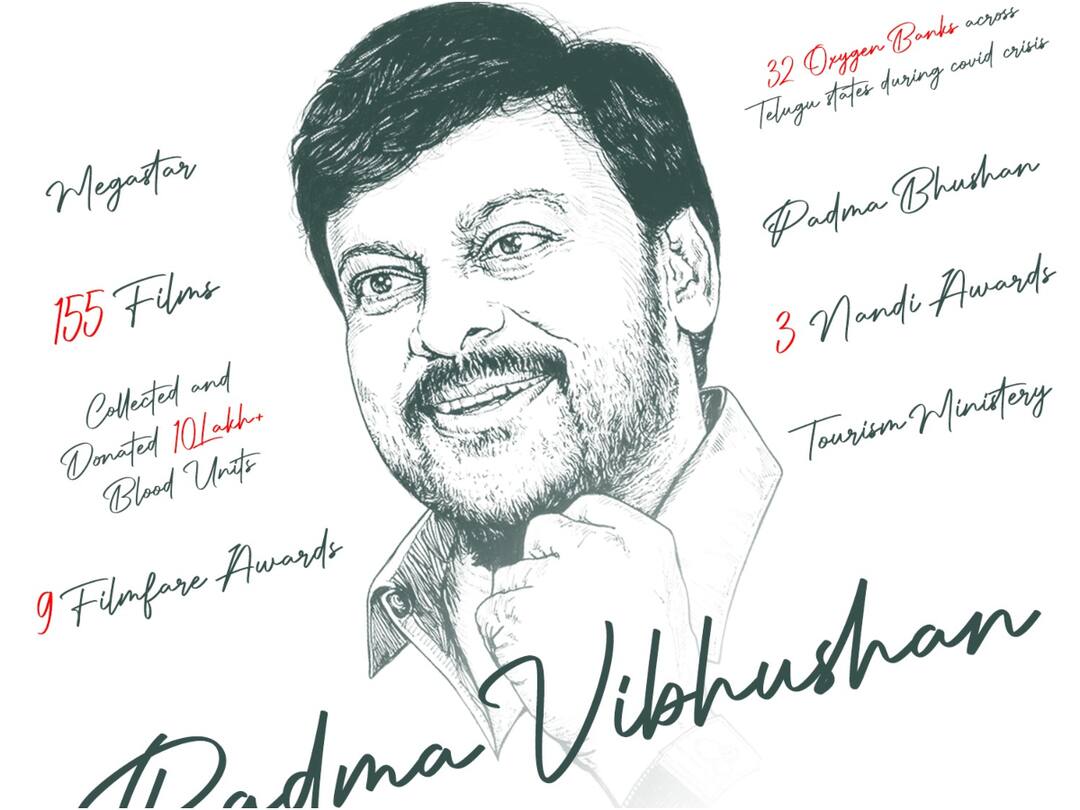 Megastar
155 Films
Collected and
Donated 10Lakh+
Blood Units
9 Filmfare Awards
32 Oxygen Banks across
Telugu states during covid crisis
Padma Bhushan
3 Nandi Awards
Tourism Ministery
Padma Vibhushan